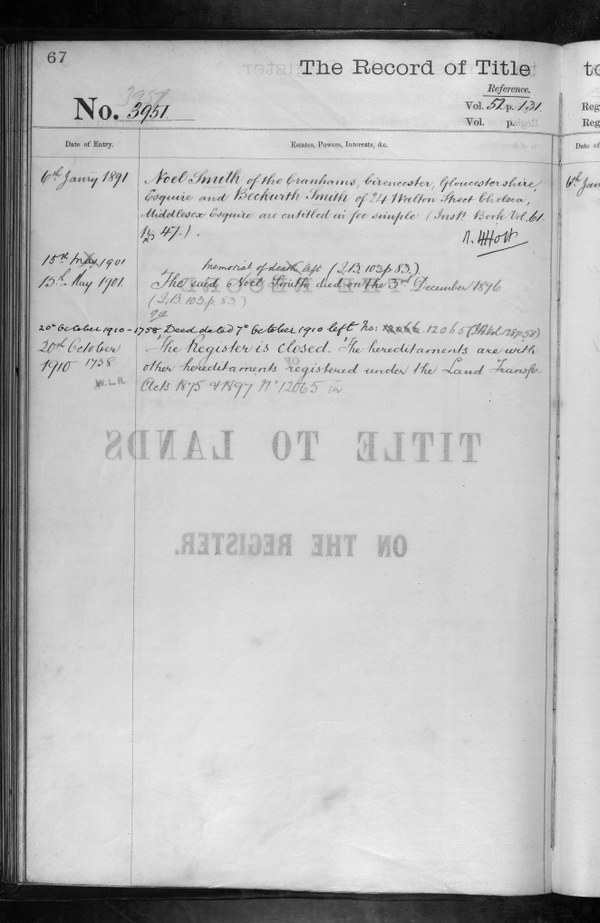 67
The Record of Title
Reference.
3951
No. 3951
Vol. 52 p. 131.
Vol. p.
Date of Entry.
Estates, Powers, Interests, &c.
6th Janry 1891
Noel Smith of the Cranhams, Cirencester, Gloucestershire,
Esquire and Beckwith Smith of 24 Walton Street Chelsea,
Middlesex Esquire are entitled in fee simple (Inst. Book Vol. 61
p 47.).
15th May 1901
Memorial of death left (I.B. 103 p 83.)
15th May 1901.
The said Noel Smith died on the 3rd December 1896
(I.B. 103 p 83)
20th October 1910 - 1758 Deed dated 7th October 1910 left No: 12065
20th October
1910 1758
W.L.R.
The Register is closed. The hereditaments are with
other hereditaments registered under the Land Transfer
Acts 1875 & 1897 No 12065
THE RECORD
OF
TITLE TO LANDS
ON THE REGISTER.
to
Reg
Reg
Date of
6th Jan